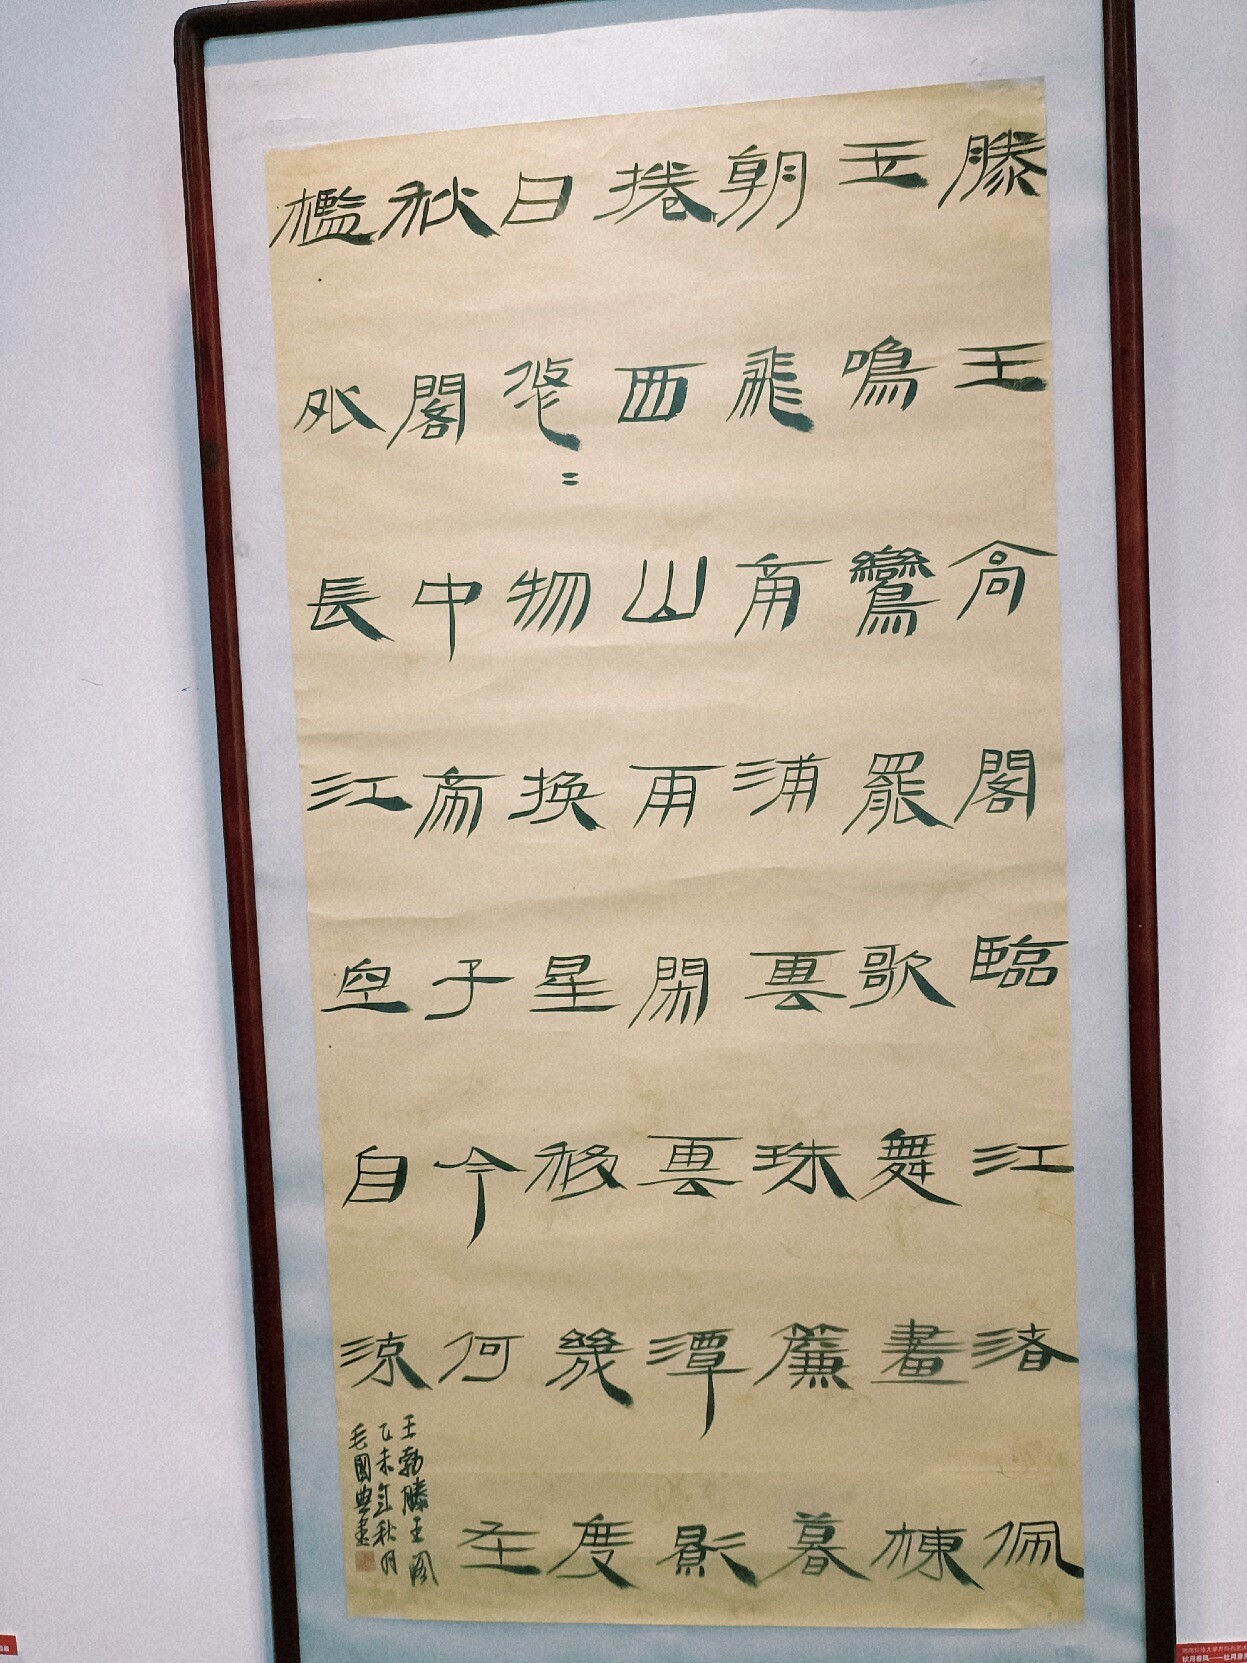 滕王高閣臨江渚佩
玉鳴鸞罷歌舞畫棟
朝飛南浦雲珠簾暮
捲西山雨閑雲潭影
日悠=物換星移幾度
秋閣中帝子今何在
檻外長江空自流
王勃滕王閣
乙未年秋月
毛國典書